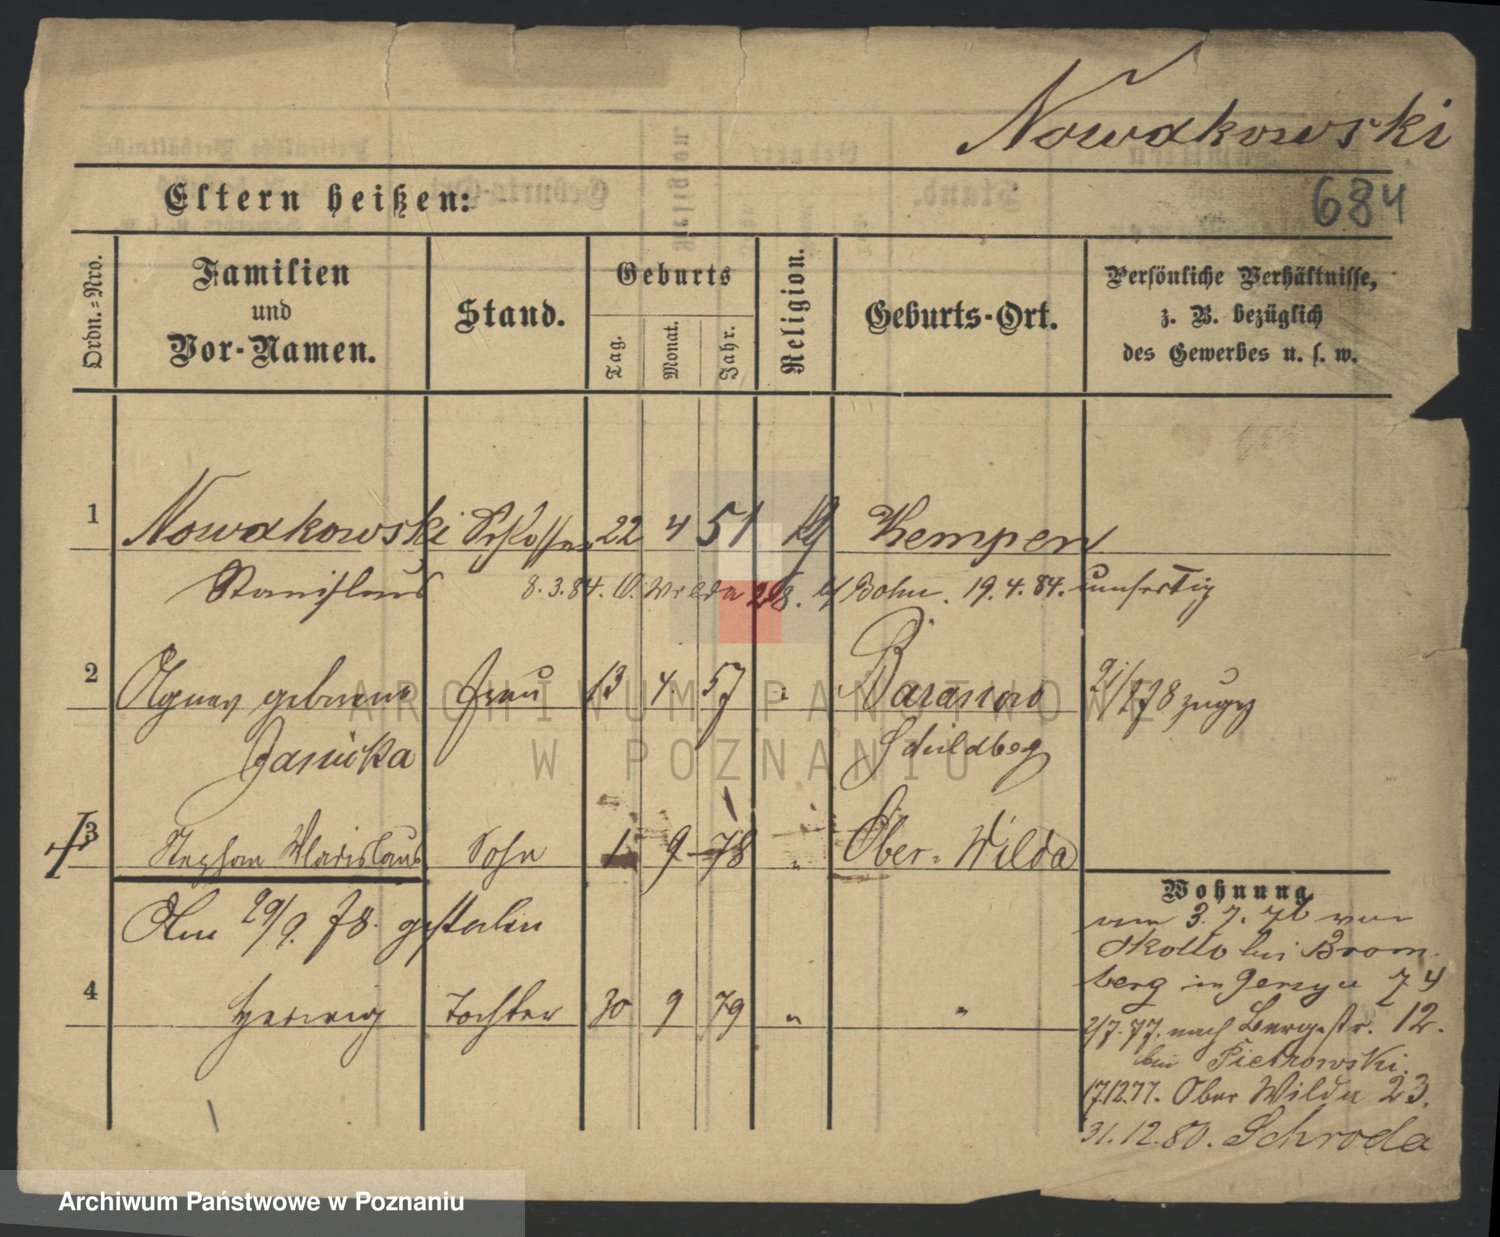 Nowakowski
684
Eltern heißen:
Ordn.-Nro.
Familien
und
Vor-Namen.
Stand.
Geburts
Tag.
Monat.
Jahr.
Religion.
Geburts-Ort.
Persönliche Verhältnisse,
z. B. bezüglich
des Gewerbes u. s. w.
1 Nowakowski Schlosser 22 4 51 Kempen
Stanislaus 8.3.84. Wilda Bohn. 19.4.84.
2 Agnes geborene Frau 13 4 57 " Baranow
Janicka Schildberg
3 Stephan Wladislaus Sohn 1 9 78 " Ober-Wilda
Am 29/9. 78. gestorben
4 Hedwig Tochter 30 9 79 " "
Wohnung
3. 7. von
bei Brom-
berg in 74
2/7. 77. nach Bergstr. 12.
bei Pietrowski.
17.12.77. Ober Wilda 23.
31.12.80. Schroda
ARCHIWUM PAŃSTWOWE
W POZNANIU
Archiwum Państwowe w Poznaniu